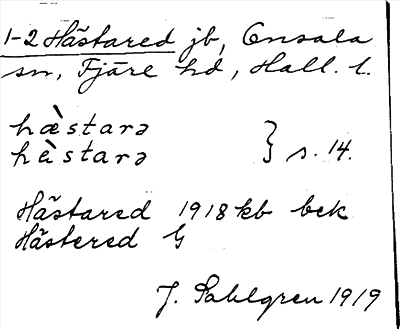 1-2 Hästared jb, Onsala
sn, Fjäre hd, Hall. l.
hæ̀starə
hὲstarə } s. 14.
Hästared 1918 kb bek
Hästered G
J. Sahlgren 1919